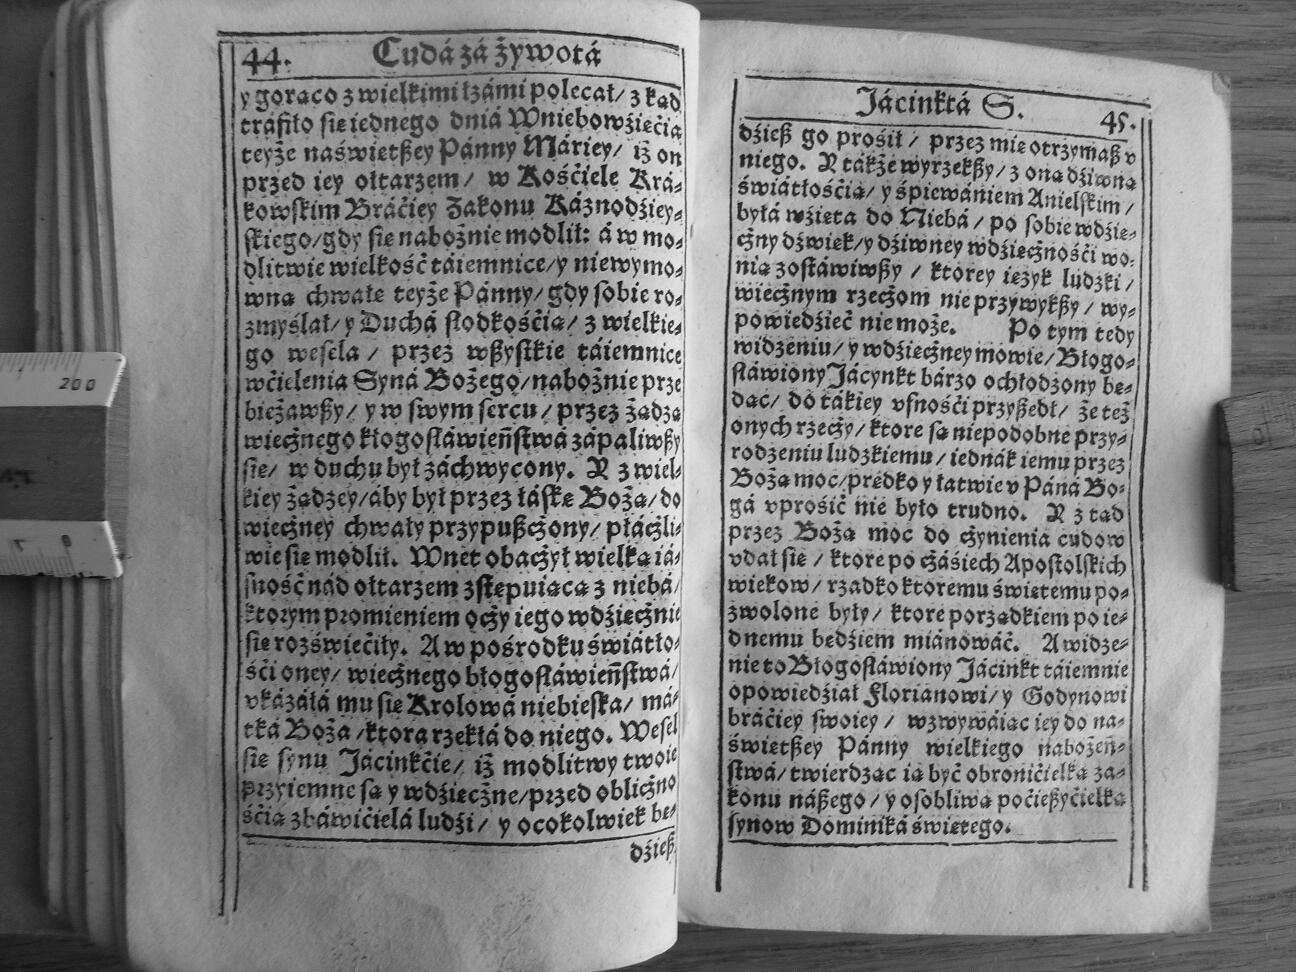 44. Cudá zá żywotá
y gorąco z wielkimi łzámi polecał / z kąd
tráfiło sie iednego dniá Wniebowźięćia
teyże naświętßey Pánny Máriey / iż on
przed iey ołtarzem / w Kośćiele Krá-
kowskim Bráćiey Zakonu Káznodźiey-
skiego / gdy się nabożnie modlił: á w mo-
dlitwie wielkość táiemnice / y niewymo-
wną chwałę teyże Pánny / gdy sobie ro-
zmyślał / y Duchá słodkośćią / z wielkie-
go wesela / przez wßystkie táiemnice
wćielenia Syná Bożego / nabożnie prze
bieżawßy / y w swym sercu / przez żądzą
wiecżnego błogosłáwieństwá zápaliwßy
się / w duchu był záchwycony. A z wiel-
kiey żądzey / áby był przez łáskę Bożą / do
wiecżney chwały przypußcżony / płácżli-
wie się modlił. Wnet obacżył wielką iá-
sność nád ołtarzem zstępuiącą z niebá /
ktorym promieniem ocży iego wdźięcżnie
się rozświećiły. A w pośrodku świátło-
śći oney / wiecżnego błogosłáwieństwá /
vkázáłá mu się Krolową niebieska / má-
tká Boża / ktora rzekłá do niego. Wesel
się synu Jácinkćie / iż modlitwy twoie
przyiemne są y wdźięcżne / przed oblicżno
śćią zbáwićielá ludźi / y o cokolwiek bę-
dźieß
Jácinktá S. 45.
dźieß go prośił / przez mię otrzymaß v
niego. A tákże wyrzekßy / z oną dźiwną
świátłośćią / y śpiewániem Anielskim /
byłá wźięta do Niebá / po sobie wdźię-
cżny dźwięk / y dźiwney wdźięcżnośći wo-
nią zostáwiwßy / ktorey ięzyk ludzki /
wiecżnym rzecżom nie przywykßy / wy-
powiedźieć nie może. Po tym tedy
widzeniu / y wdźięcżney mowie / Błogo-
słáwiony Jácynkt bárzo ochłodzony bę-
dąc / do tákiey vfnośći przyßedł / że też
onych rzecży / ktore są niepodobne przy-
rodzeniu ludzkiemu / iednák iemu przez
Bożą moc / prędko y łatwie v Páná Bo-
gá vprośić nie było trudno. A z tąd
przez Bożą moc do cżynienia cudow
vdał się / ktore po cżáśiech Apostolskich
wiekow / rzadko ktoremu świętemu po-
zwolone były / ktore porządkiem po ie-
dnemu będźiem miánowáć. A widze-
nie to Błogosłáwiony Jácinkt táiemnie
opowiedźiał Florianowi / y Godynowi
bráćiey swoiey / wzwywáiąc iey do na-
świętßey Pánny wielkiego nabożeń-
stwá / twierdząc ią być obronićielką za-
konu náßego / y osobliwą poćießyćielką
synow Dominiká świętego.